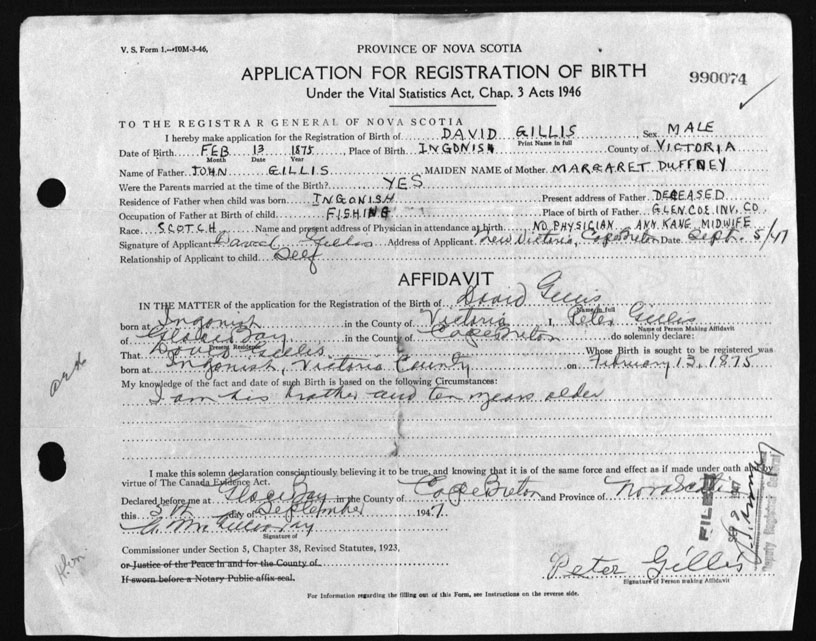 V. S. Form 1.—10M-3-46.
PROVINCE OF NOVA SCOTIA
APPLICATION FOR REGISTRATION OF BIRTH
990074
Under the Vital Statistics Act, Chap. 3 Acts 1946
TO THE REGISTRAR GENERAL OF NOVA SCOTIA
I hereby make application for the Registration of Birth of DAVID GILLIS Sex MALE
Print Name in full
Date of Birth FEB 13 1875, Place of Birth INGONISH County of VICTORIA
Month Date Year
Name of Father JOHN GILLIS MAIDEN NAME of Mother MARGARET DUFFNEY
Were the Parents married at the time of the Birth? YES
Residence of Father when child was born INGONISH Present address of Father DECEASED
Occupation of Father at Birth of child FISHING Place of Birth of Father GLENCOE INV. CO.
Race SCOTCH Name and present address of Physician in attendance at birth NO PHYSICIAN ANN KANE MIDWIFE
Signature of Applicant David Gillis Address of Applicant New Victoria, Cape Breton Date Sept. 5/47
Relationship of Applicant to child Self
AFFIDAVIT
IN THE MATTER of the application for the Registration of the Birth of David Gillis
Name in full
born at Ingonish in the County of Victoria I, Peter Gillis
Name of Person Making Affidavit
of Glace Bay in the County of Cape Breton do solemnly declare:
Present Residence
That David Gillis Whose Birth is sought to be registered was
born at Ingonish, Victoria County on February 13, 1875
My knowledge of the fact and date of such Birth is based on the following Circumstances:
I am his brother and ten years older
I make this solemn declaration conscientiously believing it to be true, and knowing that it is of the same force and effect as if made under oath and by
virtue of The Canada Evidence Act.
Declared before me at Glace Bay in the County of Cape Breton and Province of Nova Scotia
this 5th day of September 1947
Signature of
Commissioner under Section 5, Chapter 38, Revised Statutes, 1923,
or Justice of the Peace in and for the County of
If sworn before a Notary Public affix seal.
Peter Gillis
Signature of Person making Affidavit
FILED
1947
Deputy Registrar General
For Information regarding the filling out of this Form, see Instructions on the reverse side.